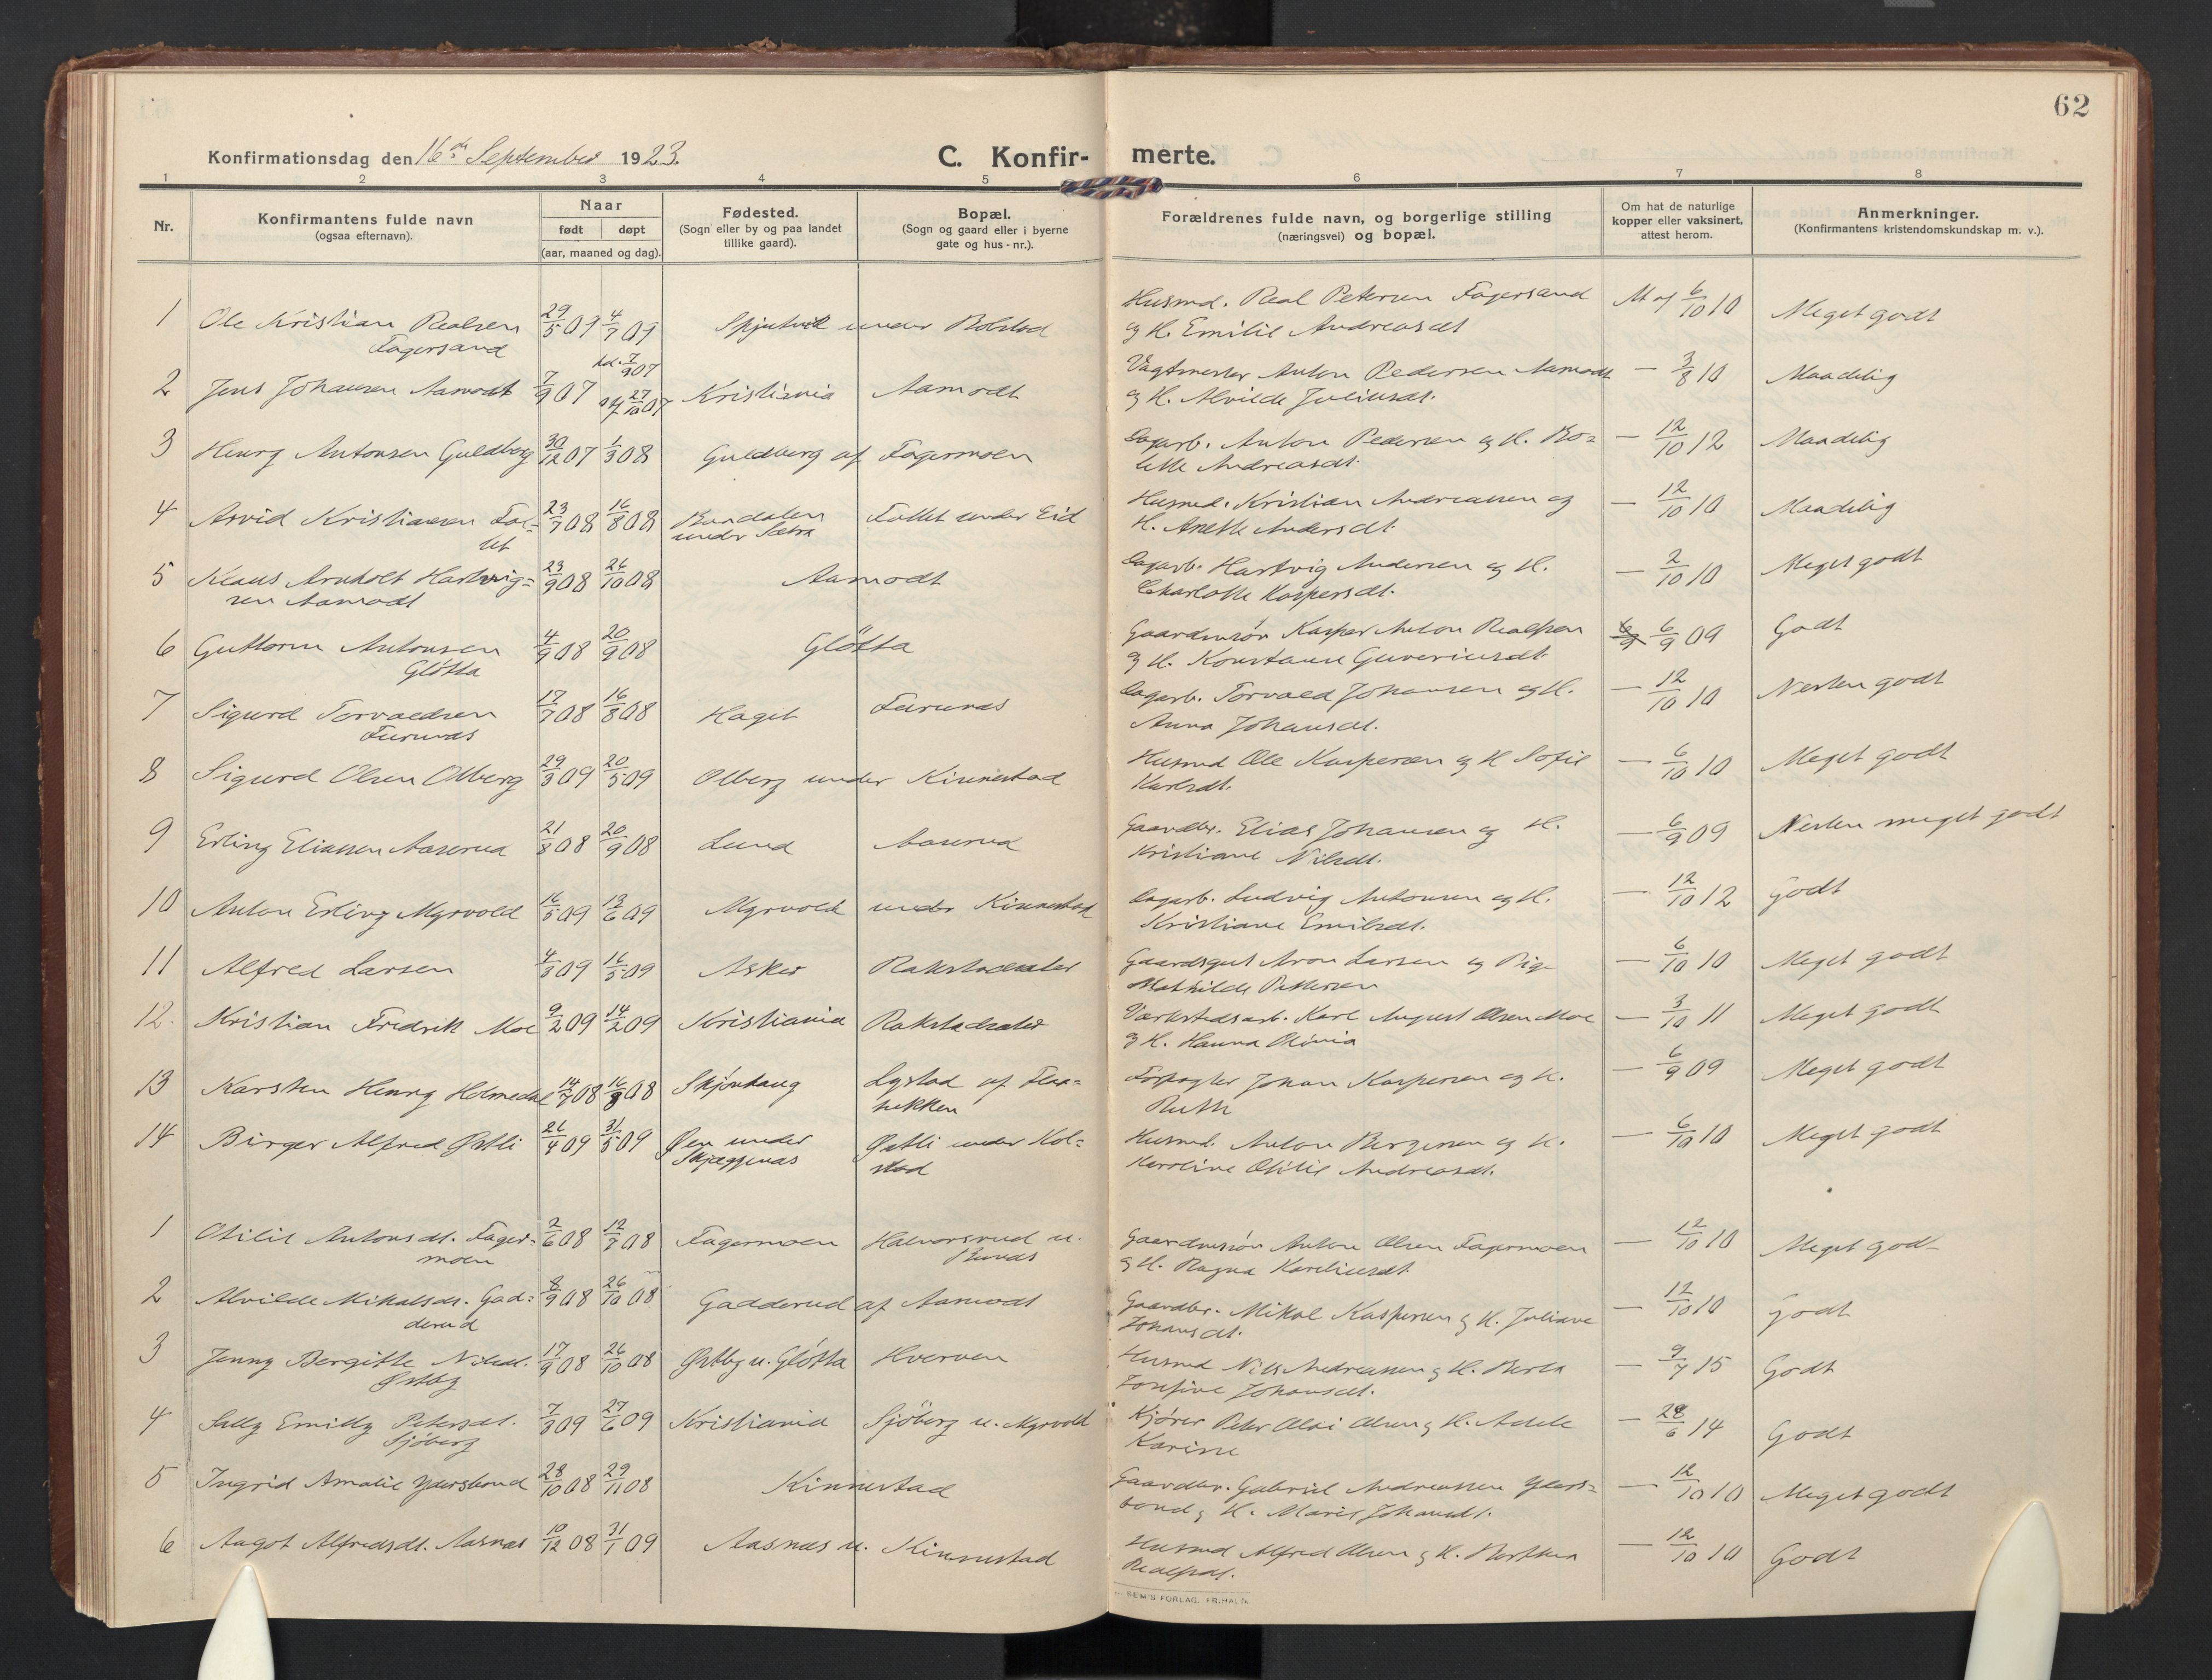 62
Konfirmationsdag den 16de September 1923.
C. Konfir- merte.
1 2 3 4 5 6 7 8
Nr.
Konfirmantens fulde navn
(ogsaa efternavn).
Naar
født døpt
(aar, maaned og dag).
Fødested.
(Sogn eller by og paa landet
tillike gaard).
Bopæl.
(Sogn og gaard eller i byerne
gate og hus-nr.).
Forældrenes fulde navn, og borgerlige stilling
(næringsvei) og bopæl.
Om hat de naturlige
kopper eller vaksinert,
attest herom.
Anmerkninger.
(Konfirmantens kristendomskundskap m. v.).
1 Ole Kristian Realsen 29/5 09 4/7 09 under Bolstad Husmd. Real Petersen Fagersand 6/10 10 Meget godt
Fagersand og H. Emilie Andreasdt
2 Jens Johansen Aamodt 7/9 07 hd. 7/9 07 27/10 07 Kristiania Aamodt Vagtmester Anton Pedersen Aamodt — 3/8 10 Maadelig
og H. Alvilde Juliusdt.
3 Henry Antonsen Guldberg 30/12 07 1/3 08 Guldberg af Fagermoen Dagarb. Anton Pedersen og H. Bo= — 12/10 12 Maadelig
lette Andreasdt.
4 Arvid Kristiansen Fol= 23/7 08 16/8 08 Bundalen Follet under Eid Husmd. Kristian Andreassen og — 12/10 10 Maadelig
let under Sætra H. Anette Andersdt.
5 Klaus Arnholt Hartvig= 23/9 08 26/10 08 Aamodt Dagarb. Hartvig Andersen og H. — 2/10 10 Meget godt
sen Aamodt Charlotte Kaspersdt.
6 Guttorm Antonsen 4/9 08 20/9 08 Glötta Gaardbr Kasper Anton Realsen 6/9 09 Godt
Glötta og H. Konstanse
7 Sigurd Torvaldsen 17/7 08 16/8 08 Haget Furunæs Dagarb. Torvald Johansen og H. — 12/10 10 Nesten godt
Furunæs Anna Johansdt.
8 Sigurd Olsen Olberg 29/3 09 20/5 09 Olberg under Kinnestad Husmd Ole Kaspersen og H Sofie — 6/10 10 Meget godt
Karlsdt.
9 Erling Eliassen Aaserud 21/8 08 20/9 08 Lund Aaserud Gaardbr. Elias Johansen og H. — 6/9 09 Nesten meget godt
Kristiane Nilsdt.
10 Anton Erling Myrvold 16/5 09 13/6 09 Myrvold under Kinnestad Dagarb. Ludvig Antonsen og H. — 12/10 12 Godt
Kristiane Emilsdt.
11 Alfred Larsen 4/3 09 16/5 09 Asker Rakstadsæter Gaardsgut Aron Larsen og Pig — 6/10 10 Meget godt
Mathilde Pettersen
12. Kristian Fredrik Moe 9/2 09 14/2 09 Kristiania Rakstadsæter Værkstedsarb. Karl August Olsen Moe — 3/10 11 Meget godt
og H. Hanna
13 Karsten Henry Holmedal 14/7 08 16/8 08 Skjönhaug Lystad af Flaa= Forpagter Johan Kaspersen og H. — 6/9 09 Meget godt
bekken Ruth
14 Birger Alfred Østli 26/4 09 31/5 09 Øen under Østli under Kol= Husmd. Anton Birgersen og H. — 6/10 10 Meget godt
Skjæggenæs stad Karoline Otilie Andreasdt.
1 Otilie Antonsdt. Fager= 2/6 08 12/7 08 Fagermoen Halvorsrud u. Gaardbr Anton Olsen Fagermoen — 12/10 10 Meget godt
moen og H. Ragna Kareliusdt
2 Alvilde Mikalsdt. Gad= 8/9 08 26/10 08 Gadderud af Aamodt Gaardbr. Mikal Kaspersen og H. Juliane — 12/10 10 Godt
derud Johansdt.
3 Jenny Bergitte Nilsdt. 17/9 08 26/10 08 Østby u. Glötta Hverven Husmd Nils Andreassen og H. Berta — 9/7 15 Godt
Østby Josefine Johansdt.
4 Sally Emilly Petersdt. 7/3 09 27/6 09 Kristiania Sjöberg u. Myrvold Kjører Peter Olsen og H. Adele — 28/6 14 Godt
Sjöberg Karine
5 Ingrid Amalie Ydersbond 28/10 08 29/11 08 Kinnestad Gaardbr. Gabriel Andreassen Yders= — 12/10 10 Meget godt
bond og H. Marie Johansdt.
6 Aagot Alfredsdt. Aasnæs 10/12 08 31/1 09 Aasnæs u. Kinnestad Husmd Alfred Olsen og H. — 12/10 10 Godt
Realsdt.
SEM'S FORLAG, FR.HALD.